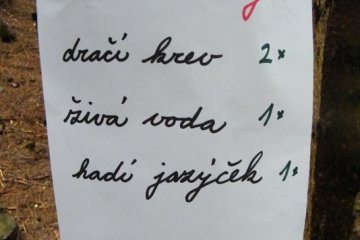 dračí krev 2x
živá voda 1x
hadí jazýček 1x